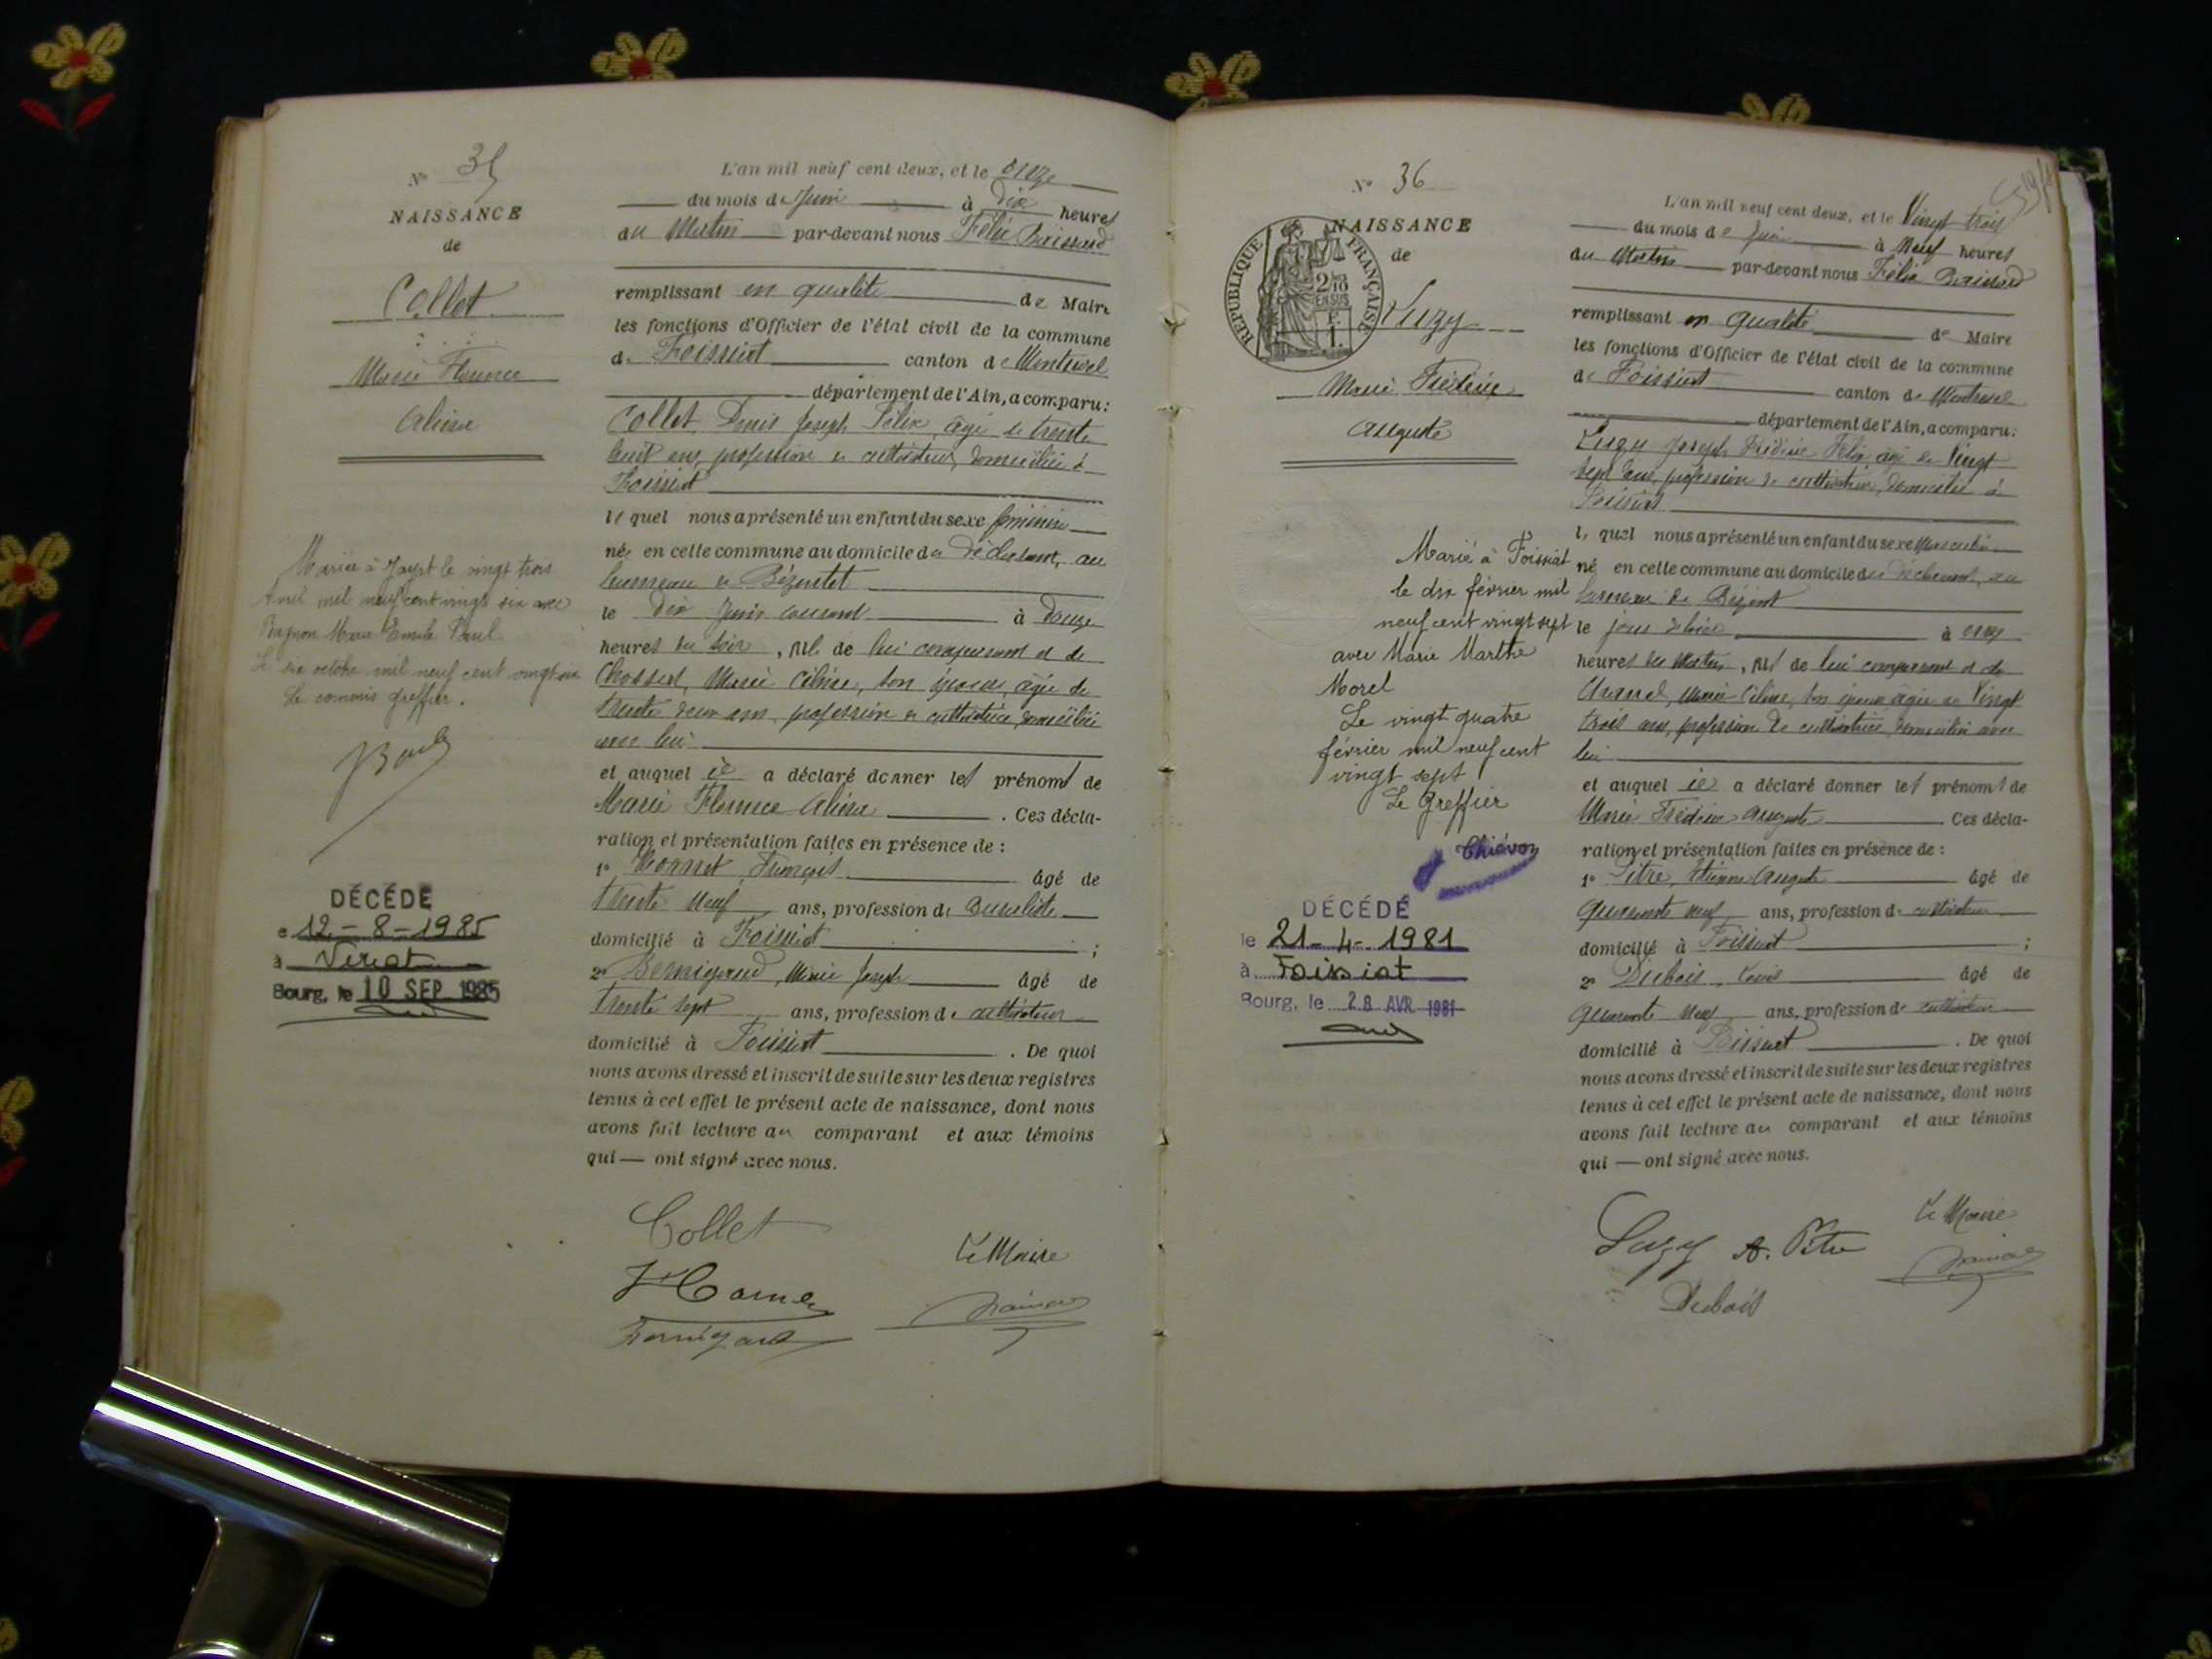 N° 35
NAISSANCE
de
Collet
Marie Florence
Aline
Mariée à Jayat le vingt trois
Avril mil neuf cent vingt six avec
Marie Emile Paul
Le six octobre mil neuf cent vingt six
Le commis greffier.
DÉCÉDÉ
le 12-8-1985
à Viriat
Bourg, le 10 SEP 1985
L'an mil neuf cent deux, et le onze
du mois de Juin à Dix heures
du Matin par-devant nous Félix
remplissant en qualité de Maire
les fonctions d'Officier de l'état civil de la commune
de Foissiat canton de Montrevel
département de l'Ain, a comparu:
Collet Denis Joseph Félix, âgé de trente
huit ans, profession de cultivateur, domicilié à
Foissiat
lequel nous a présenté un enfant du sexe féminin
née en cette commune au domicile du déclarant, au
hameau de
le dix Juin courant à douze
heures du soir, fille de lui comparant et de
Marie Céline, son épouse, âgée de
trente deux ans, profession de cultivatrice, domiciliée
avec lui
et auquel il a déclaré donner les prénoms de
Marie Florence Aline. Ces décla-
ration et présentation faites en présence de :
1° François âgé de
trente neuf ans, profession de Buraliste
domicilié à Foissiat ;
2° Bernigaud, Marie Joseph âgé de
trente sept ans, profession de cultivateur
domicilié à Foissiat. De quoi
nous avons dressé et inscrit de suite sur les deux registres
tenus à cet effet le présent acte de naissance, dont nous
avons fait lecture au comparant et aux témoins
qui — ont signé avec nous.
Collet
Le Maire
Bernigaud
N° 36
NAISSANCE
de
RÉPUBLIQUE FRANÇAISE
2/10
EN SUS
F.
1.
Luzy
Marie Frédéric
Auguste
Marié à Foissiat
le dix février mil
neuf cent vingt sept
avec Marie Marthe
Morel
Le vingt quatre
février mil neuf cent
vingt sept
Le Greffier
Thiévon
DÉCÉDÉ
le 21-4-1981
à Foissiat
Bourg, le 28 AVR 1981
L'an mil neuf cent deux, et le Vingt trois
du mois de Juin à Neuf heures
du Matin par-devant nous Félix
remplissant en qualité de Maire
les fonctions d'Officier de l'état civil de la commune
de Foissiat canton de Montrevel
département de l'Ain, a comparu:
Luzy Joseph Frédéric Félix, âgé de Vingt
sept ans, profession de cultivateur, domicilié à
Foissiat
lequel nous a présenté un enfant du sexe Masculin
né en cette commune au domicile du déclarant, au
hameau de
le jour d'hier à onze
heures du Matin, fils de lui comparant et de
Marie Céline, son épouse âgée de Vingt
trois ans, profession de cultivatrice, domiciliée avec
lui
et auquel il a déclaré donner les prénoms de
Marie Frédéric Auguste. Ces décla-
ration et présentation faites en présence de :
1° Pitre, Etienne Auguste âgé de
quarante neuf ans, profession de cultivateur
domicilié à Foissiat ;
2° Dubois Louis âgé de
quarante neuf ans, profession de cultivateur
domicilié à Foissiat. De quoi
nous avons dressé et inscrit de suite sur les deux registres
tenus à cet effet le présent acte de naissance, dont nous
avons fait lecture au comparant et aux témoins
qui — ont signé avec nous.
Luzy A. Pitre
Le Maire
Dubois